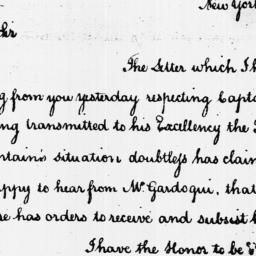 New York
Sir
The Letter which I h
g from you yesterday respecting Capta
ng transmitted to his Excellency the
ntain's situation doubtless has claim
ppy to hear from Mr. Gardoqui, that
se has orders to receive and subsist
I have the Honor to be